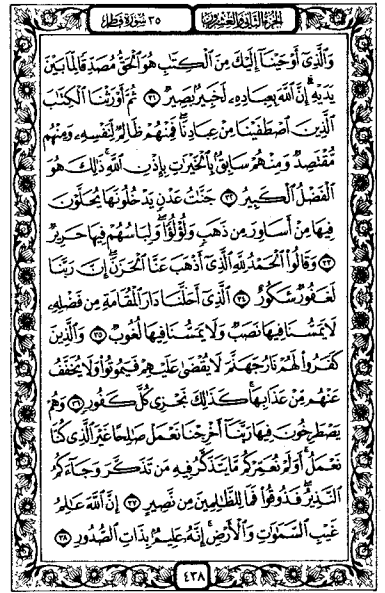 الجزء الثاني والعشرون ٣٥ سورة فاطر
وَٱلَّذِىٓ أَوْحَيْنَآ إِلَيْكَ مِنَ ٱلْكِتَٰبِ هُوَ ٱلْحَقُّ مُصَدِّقًا لِّمَا بَيْنَ
يَدَيْهِ ۗ إِنَّ ٱللَّهَ بِعِبَادِهِۦ لَخَبِيرٌۢ بَصِيرٌ ٣١ ثُمَّ أَوْرَثْنَا ٱلْكِتَٰبَ
ٱلَّذِينَ ٱصْطَفَيْنَا مِنْ عِبَادِنَا ۖ فَمِنْهُمْ ظَالِمٌ لِّنَفْسِهِۦ وَمِنْهُم
مُّقْتَصِدٌ وَمِنْهُمْ سَابِقٌۢ بِٱلْخَيْرَٰتِ بِإِذْنِ ٱللَّهِ ۚ ذَٰلِكَ هُوَ
ٱلْفَضْلُ ٱلْكَبِيرُ ٣٢ جَنَّٰتُ عَدْنٍ يَدْخُلُونَهَا يُحَلَّوْنَ
فِيهَا مِنْ أَسَاوِرَ مِن ذَهَبٍ وَلُؤْلُؤًا ۖ وَلِبَاسُهُمْ فِيهَا حَرِيرٌ
٣٣ وَقَالُوا۟ ٱلْحَمْدُ لِلَّهِ ٱلَّذِىٓ أَذْهَبَ عَنَّا ٱلْحَزَنَ ۖ إِنَّ رَبَّنَا
لَغَفُورٌ شَكُورٌ ٣٤ ٱلَّذِىٓ أَحَلَّنَا دَارَ ٱلْمُقَامَةِ مِن فَضْلِهِۦ
لَا يَمَسُّنَا فِيهَا نَصَبٌ وَلَا يَمَسُّنَا فِيهَا لُغُوبٌ ٣٥ وَٱلَّذِينَ
كَفَرُوا۟ لَهُمْ نَارُ جَهَنَّمَ لَا يُقْضَىٰ عَلَيْهِمْ فَيَمُوتُوا۟ وَلَا يُخَفَّفُ
عَنْهُم مِّنْ عَذَابِهَا ۚ كَذَٰلِكَ نَجْزِى كُلَّ كَفُورٍ ٣٦ وَهُمْ
يَصْطَرِخُونَ فِيهَا رَبَّنَآ أَخْرِجْنَا نَعْمَلْ صَٰلِحًا غَيْرَ ٱلَّذِى كُنَّا
نَعْمَلُ ۚ أَوَلَمْ نُعَمِّرْكُم مَّا يَتَذَكَّرُ فِيهِ مَن تَذَكَّرَ وَجَآءَكُمُ
ٱلنَّذِيرُ ۖ فَذُوقُوا۟ فَمَا لِلظَّٰلِمِينَ مِن نَّصِيرٍ ٣٧ إِنَّ ٱللَّهَ عَٰلِمُ
غَيْبِ ٱلسَّمَٰوَٰتِ وَٱلْأَرْضِ ۚ إِنَّهُۥ عَلِيمٌۢ بِذَاتِ ٱلصُّدُورِ ٣٨
٤٣٨